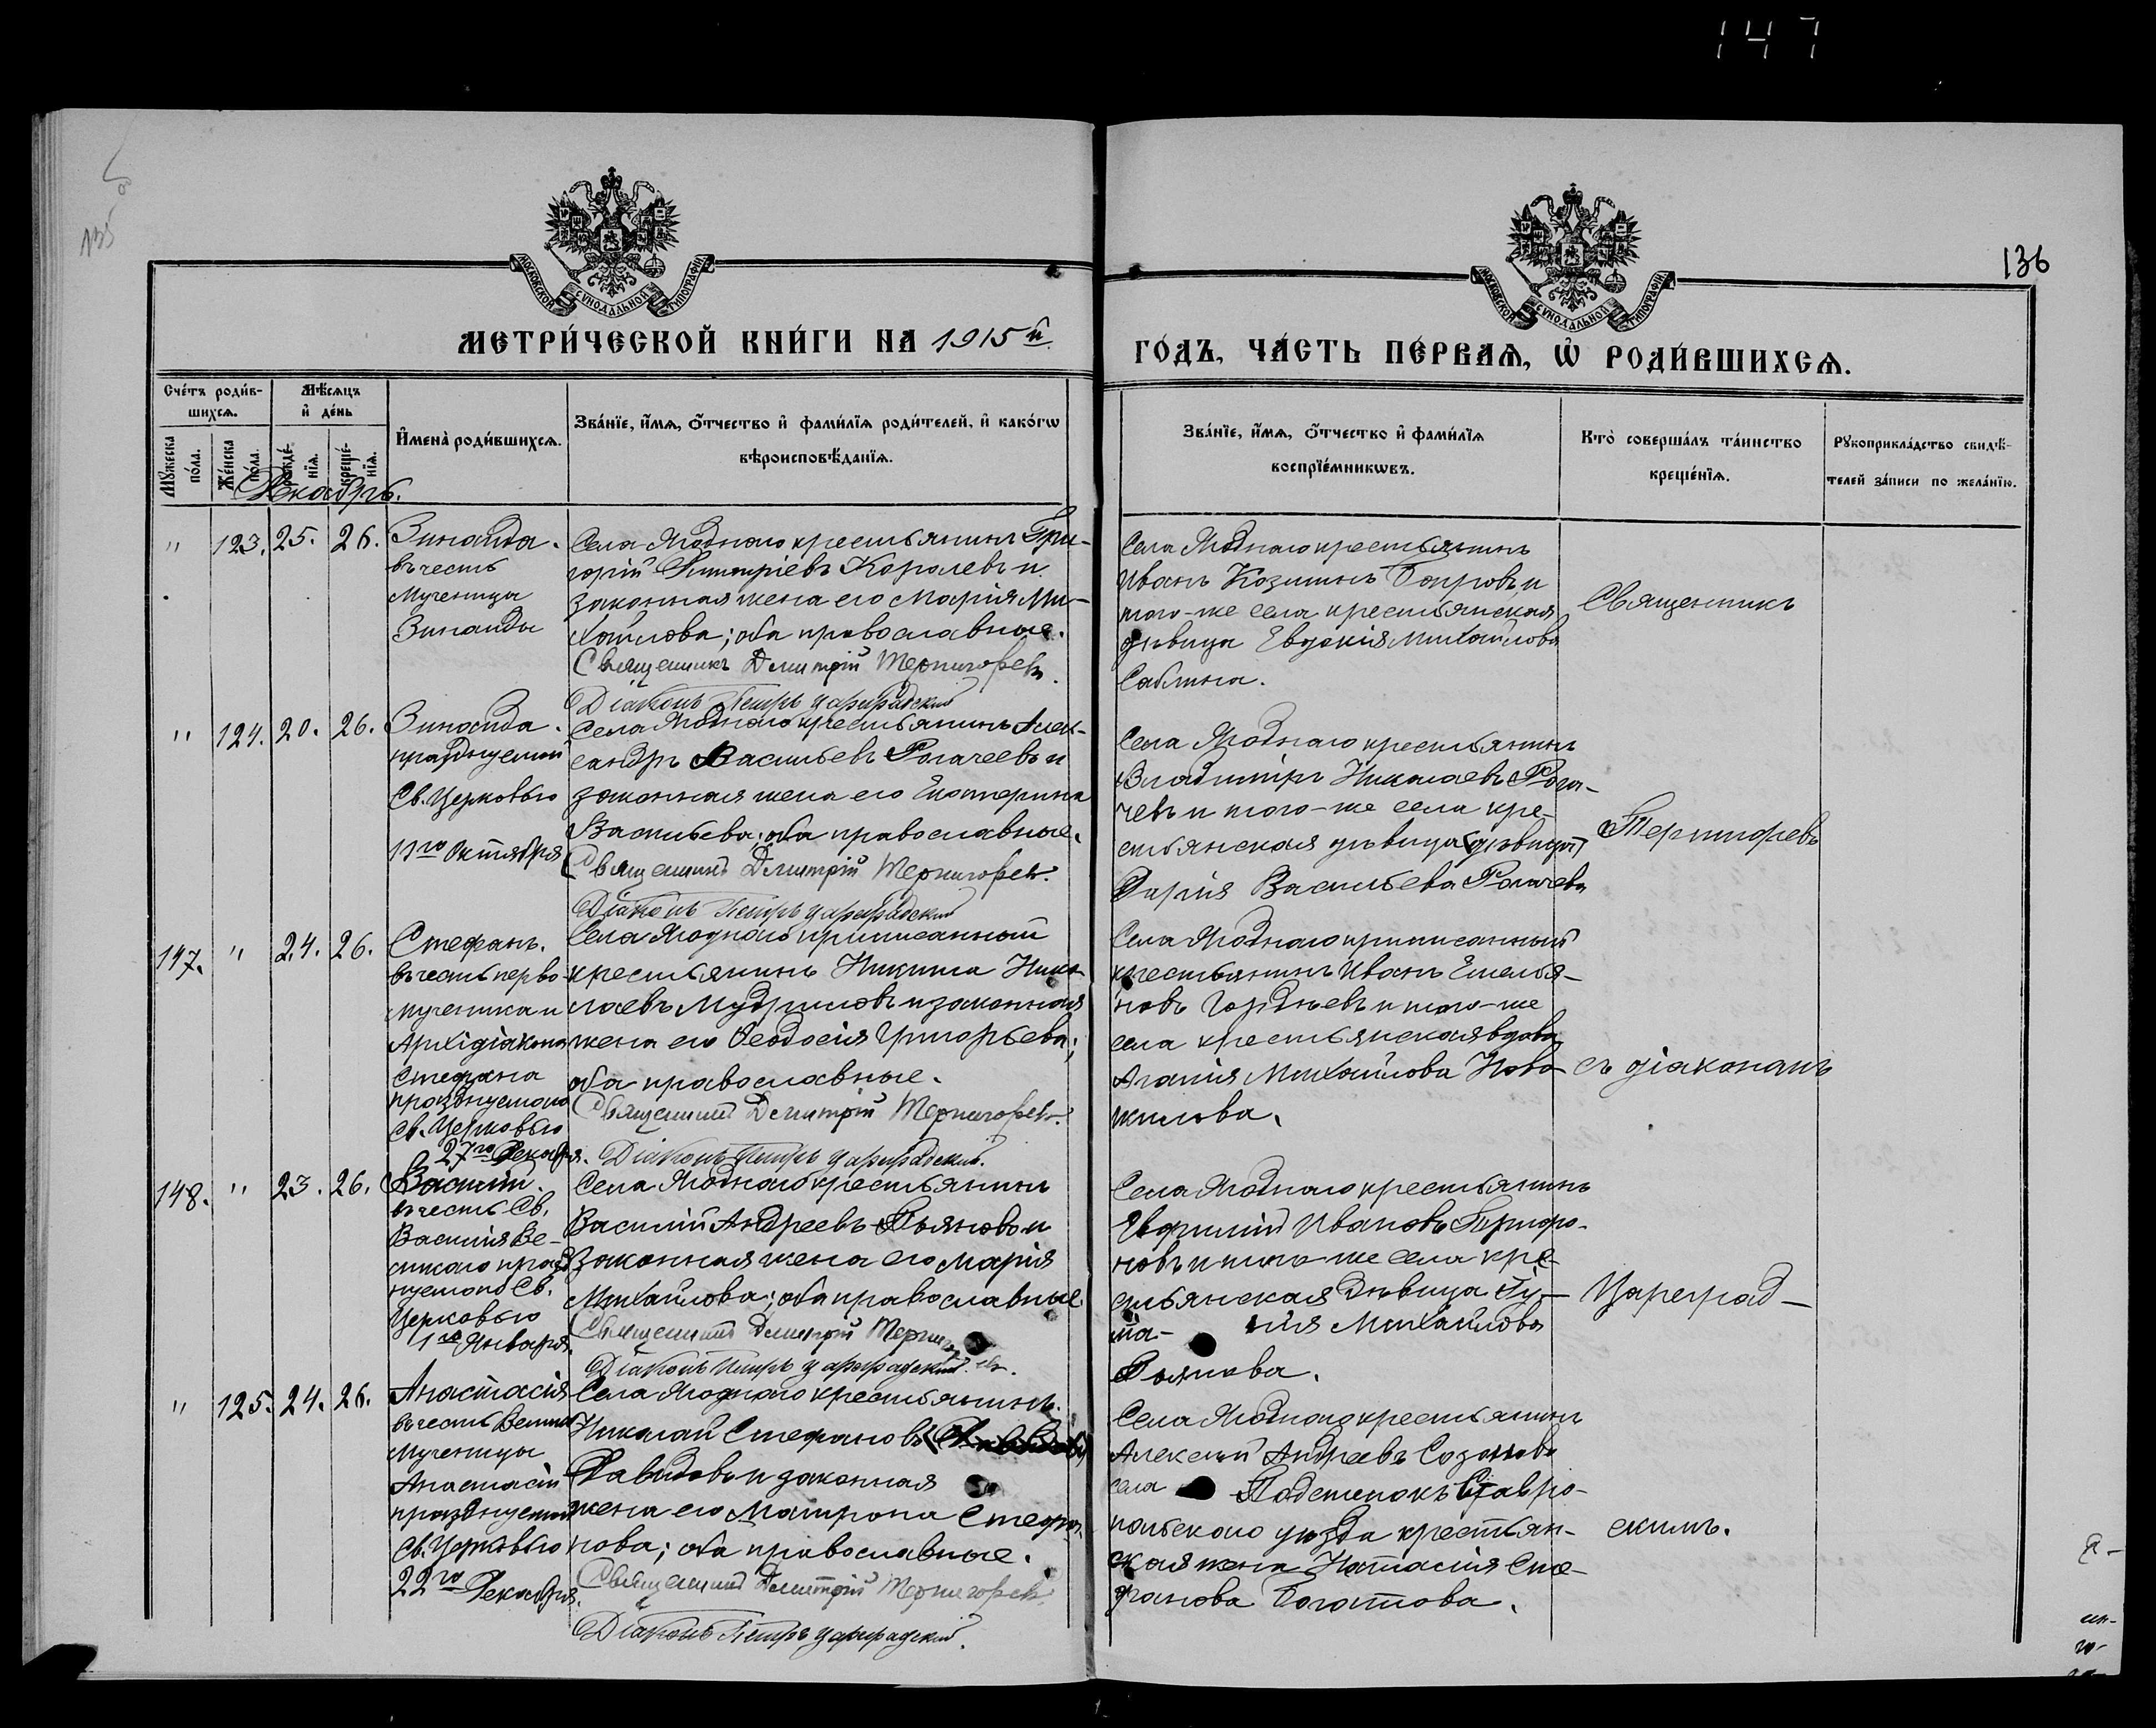 147
136
МОСКОВСКОЙ СѴНОДАЛЬНОЙ ТИПОГРАФІИ
МОСКОВСКОЙ СѴНОДАЛЬНОЙ ТИПОГРАФІИ
МЕТРИ́ЧЕСКОЙ КНИ́ГИ НА 1915й
ГО́ДЪ, ЧА́СТЬ ПЕ́РВАѦ, Ѡ҆ РОДИ́ВШИХСѦ.
Сче́тъ роди́в-
шихсѧ.
Мѣ́сѧцъ
и҆ де́нь
Мꙋ́жеска
по́ла.
Же́нска
по́ла.
рожде́-
нїѧ.
креще́-
нїѧ.
И҆мена̀ роди́вшихсѧ.
Зва́нїе, и҆́мѧ, ѻ҆́тчество и҆ фами́лїѧ роди́телей, и҆ како́гѡ
вѣроисповѣ́данїѧ.
Зва́нїе, и҆́мѧ, ѻ҆́тчество и҆ фами́лїѧ
воспрїе́мникѡвъ.
Кто̀ соверша́лъ та́инство
креще́нїѧ.
Рꙋкоприкла́дство свидѣ́-
телей за́писи по жела́нїю.
Декабрь.
" 123. 25. 26.
Зинаида.
въ честь
Мученицы
Зинаиды
Села Ягоднаго крестьянинъ Гри-
горій Димитріевъ Королевъ и
законная жена его Марія Ми-
хайлова; оба православные.
Священникъ Димитрій Терпигоревъ.
Діаконъ Петръ Цареградскій
Села Ягоднаго крестьянинъ
Иванъ Козминъ Бояровъ и
того-же села крестьянская
дѣвица Евдокія Михайлова
Саблина.
Священникъ
" 124. 20. 26.
Зинаида.
празднуемой
Св. Церковью
11го Октября
Села Ягоднаго крестьянинъ Алек-
сандръ Васильевъ Рогачевъ и
законная жена его Екатерина
Васильева; оба православные.
Священникъ Димитрій Терпигоревъ.
Діаконъ Петръ Цареградскій
Села Ягоднаго крестьянинъ
Владиміръ Николаевъ Рога-
чевъ и того-же села кре-
стьянская дѣвица (дѣвица)
Дарія Васильева Рогачева
Терпигоревъ
147. " 24. 26.
Стефанъ.
въ честь перво-
мученика и
Архідіакона
Стефана
празднуемаго
Св. Церковью
27го Декабря.
Села Ягоднаго приписанный
крестьянинъ Никита Нико-
лаевъ Мудриловъ и законная
жена его Ѳеодосія Григорьева;
оба православные.
Священникъ Димитрій Терпигоревъ.
Діаконъ Петръ Цареградскій.
Села Ягоднаго приписанный
крестьянинъ Иванъ Емелья-
новъ Гордѣевъ и того-же
села крестьянская вдова
Агапія Михайлова Ново-
жилова.
съ діакономъ
148. " 23. 26.
Василій.
въ честь Св.
Василія Ве-
ликаго празд-
нуемаго Св.
Церковью
1го Января.
Села Ягоднаго крестьянинъ
Василій Андреевъ Рьяновъ и
законная жена его Марія
Михайлова; оба православные
Священникъ Димитрій
Діаконъ Петръ Цареградскій.
Села Ягоднаго крестьянинъ
Евфимій Ивановъ
новъ и того-же села кре-
стьянская дѣвица
Михайлова
Рьянова.
Цареград-
" 125. 24. 26.
Анастасія
въ честь Велико-
Мученицы
Анастасіи
празднуемой
Св. Церковью
22го Декабря.
Села Ягоднаго крестьянинъ
Николай Стефановъ
Давыдовъ и законная
жена его Матрона Стефа-
нова; оба православные.
Священникъ Димитрій Терпигоревъ.
Діаконъ Петръ Цареградскій.
Села Ягоднаго крестьянинъ
Алексѣй Андреевъ Созоновъ
села Подстепокъ Ставро-
польскаго уѣзда крестьян-
ская жена Наталія Сте-
фанова Богатова.
скимъ.